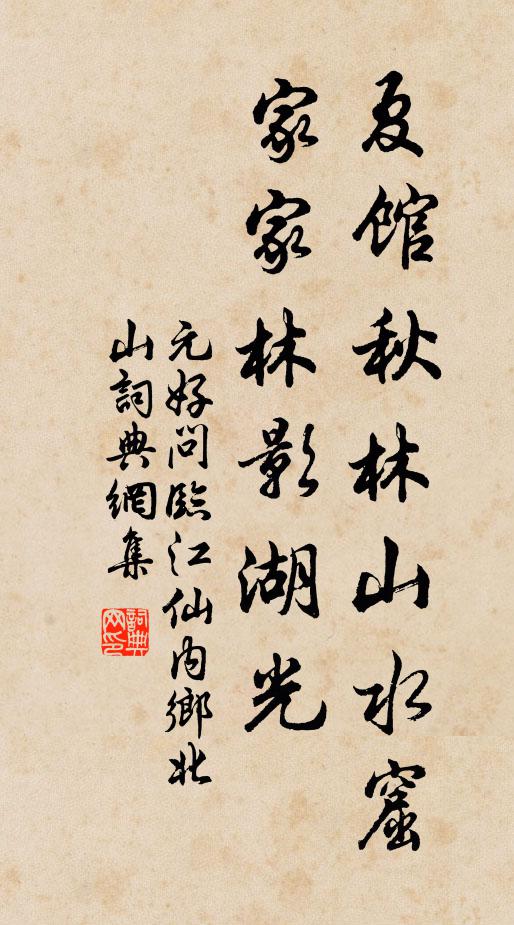 夏館秋林山水窟
家家林影湖光
元好問臨江仙内鄉北
山詞典網集
詞典网印